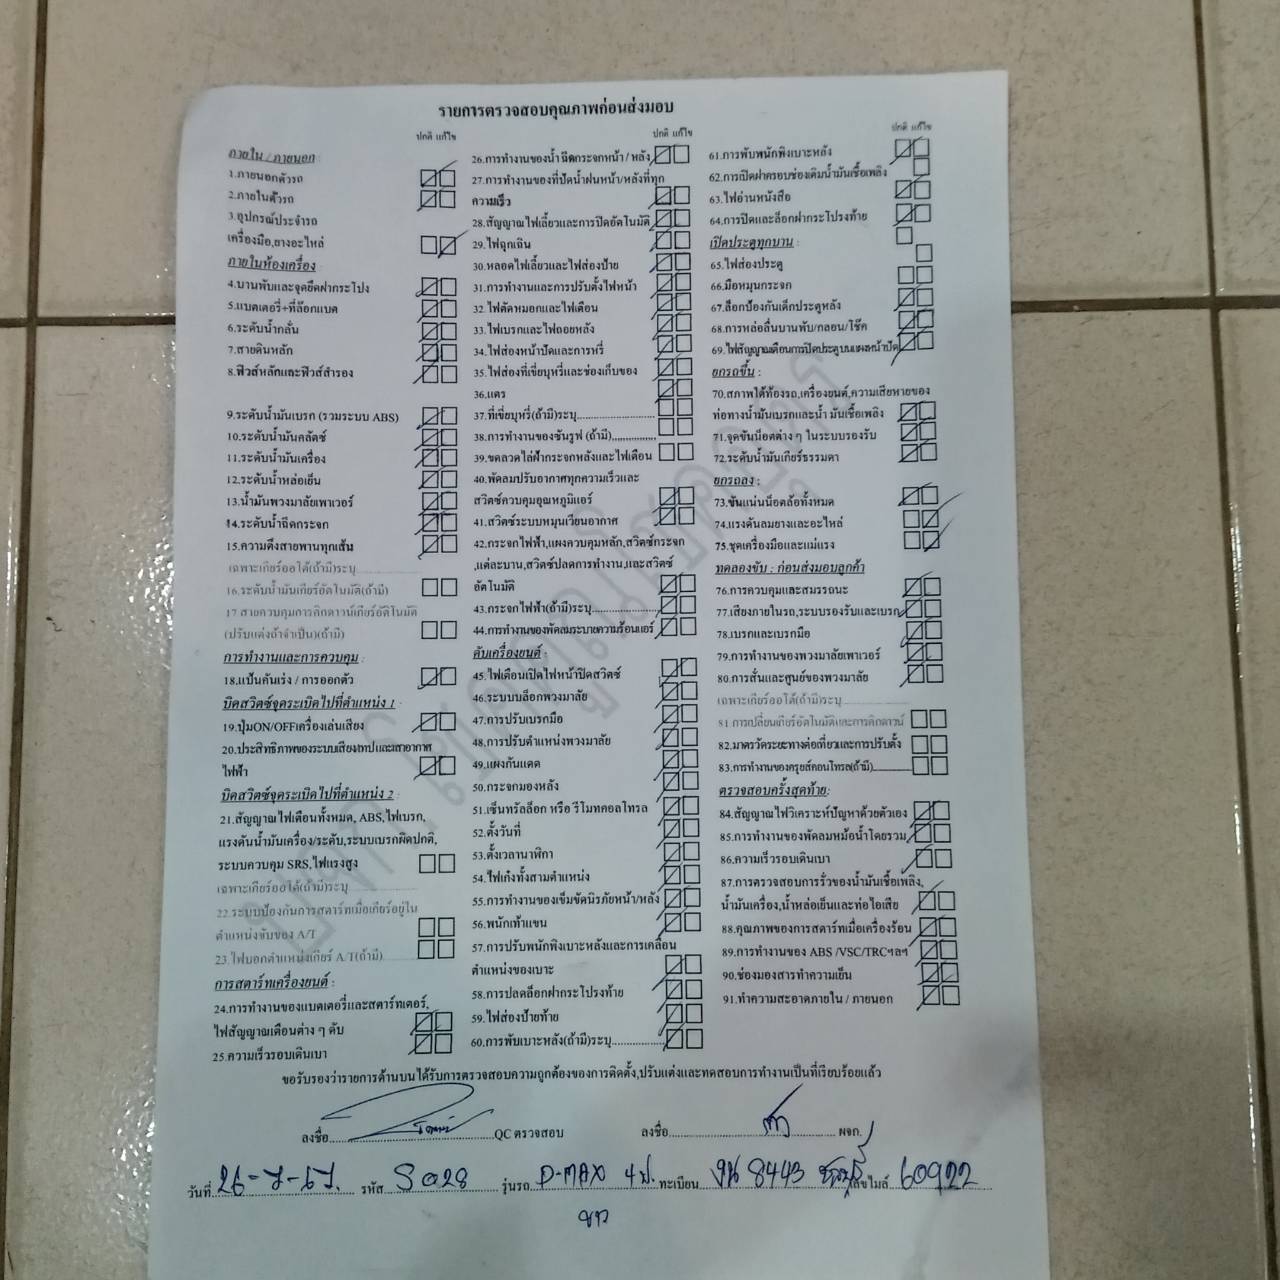 รายการตรวจสอบคุณภาพก่อนส่งมอบ
ปกติ แก้ไข
ภายใน / ภายนอก :
1.ภายนอกตัวรถ
2.ภายในตัวรถ
3.อุปกรณ์ประจำรถ
เครื่องมือ,ยางอะไหล่
ภายในห้องเครื่อง :
4.บานพับและจุดยึดฝากระโปง
5.แบตเตอรี่+ที่ล๊อกแบต
6.ระดับน้ำกลั่น
7.สายดินหลัก
8.ฟิวส์หลักและฟิวส์สำรอง
9.ระดับน้ำมันเบรก (รวมระบบ ABS)
10.ระดับน้ำมันคลัตซ์
11.ระดับน้ำมันเครื่อง
12.ระดับน้ำหล่อเย็น
13.น้ำมันพวงมาลัยเพาเวอร์
14.ระดับน้ำฉีดกระจก
15.ความตึงสายพานทุกเส้น
เฉพาะเกียร์ออโต้(ถ้ามี)ระบุ
16.ระดับน้ำมันเกียร์อัตโนมัติ(ถ้ามี)
17.สายควบคุมการคิกดาวน์เกียร์อัติโนมัติ
(ปรับแต่งถ้าจำเป็น)(ถ้ามี)
การทำงานและการควบคุม :
18.แป้นคันเร่ง / การออกตัว
บิดสวิตซ์จุดระเบิดไปที่ตำแหน่ง 1
19.ปุ่มON/OFFเครื่องเล่นเสียง
20.ประสิทธิภาพของระบบเสียงเทปและเสาอากาศ
ไฟฟ้า
บิดสวิตซ์จุดระเบิดไปที่ตำแหน่ง 2 :
21.สัญญาณไฟเตือนทั้งหมด, ABS,ไฟเบรก,
แรงดันน้ำมันเครื่อง/ระดับ,ระบบเบรกผิดปกติ,
ระบบควบคุม SRS,ไฟแรงสูง
เฉพาะเกียร์ออโต้(ถ้ามี)ระบุ
22.ระบบป้องกันการสตาร์ทเมื่อเกียร์อยู่ใน
ตำแหน่งขับของ A/T
23.ไฟบอกตำแหน่งเกียร์ A/T(ถ้ามี)
การสตาร์ทเครื่องยนต์ :
24.การทำงานของแบตเตอรี่และสตาร์ทเตอร์,
ไฟสัญญาณเตือนต่าง ๆ ดับ
25.ความเร็วรอบเดินเบา
ปกติ แก้ไข
26.การทำงานของน้ำฉีดกระจกหน้า / หลัง
27.การทำงานของที่ปัดน้ำฝนหน้า/หลังที่ทุก
ความเร็ว
28.สัญญาณไฟเลี้ยวและการปิดอัตโนมัติ
29.ไฟฉุกเฉิน
30.หลอดไฟเลี้ยวและไฟส่องป้าย
31.การทำงานและการปรับตั้งไฟหน้า
32.ไฟตัดหมอกและไฟเตือน
33.ไฟเบรกและไฟถอยหลัง
34.ไฟส่องหน้าปัดและการหรี่
35.ไฟส่องที่เขี่ยบุหรี่และช่องเก็บของ
36.แตร
37.ที่เขี่ยบุหรี่(ถ้ามี)ระบุ
38.การทำงานของซันรูฟ (ถ้ามี)
39.ขดลวดไล่ฝ้ากระจกหลังและไฟเตือน
40.พัดลมปรับอากาศทุกความเร็วและ
สวิตซ์ควบคุมอุณหภูมิแอร์
41.สวิตซ์ระบบหมุนเวียนอากาศ
42.กระจกไฟฟ้า,แผงควบคุมหลัก,สวิตซ์กระจก
,แต่ละบาน,สวิตซ์ปลดการทำงาน,และสวิตซ์
อัตโนมัติ
43.กระจกไฟฟ้า(ถ้ามี)ระบุ
44.การทำงานของพัดลมระบายความร้อนแอร์
ดับเครื่องยนต์ :
45.ไฟเตือนเปิดไฟหน้าปิดสวิตซ์
46.ระบบบล็อกพวงมาลัย
47.การปรับเบรกมือ
48.การปรับตำแหน่งพวงมาลัย
49.แผงกันแดด
50.กระจกมองหลัง
51.เซ็นทรัลล็อก หรือ รีโมทคอลโทรล
52.ตั้งวันที่
53.ตั้งเวลานาฬิกา
54.ไฟเก๋งทั้งสามตำแหน่ง
55.การทำงานของเข็มขัดนิรภัยหน้า/หลัง
56.พนักเท้าแขน
57.การปรับพนักพิงเบาะหลังและการเคลื่อน
ตำแหน่งของเบาะ
58.การปลดล็อกฝากระโปรงท้าย
59.ไฟส่องป้ายท้าย
60.การพับเบาะหลัง(ถ้ามี)ระบุ
ปกติ แก้ไข
61.การพับพนักพิงเบาะหลัง
62.การเปิดฝาครอบช่องเติมน้ำมันเชื้อเพลิง
63.ไฟอ่านหนังสือ
64.การปิดและล็อกฝากระโปรงท้าย
เปิดประตูทุกบาน :
65.ไฟส่องประตู
66.มือหมุนกระจก
67.ล็อกป้องกันเด็กประตูหลัง
68.การหล่อลื่นบานพับ/กลอน/โช๊ค
69.ไฟสัญญาณเตือนการปิดประตูบนแผงหน้าปัด
ยกรถขึ้น :
70.สภาพใต้ท้องรถ,เครื่องยนต์,ความเสียหายของ
ท่อทางน้ำมันเบรกและน้ำ มันเชื้อเพลิง
71.จุดขันน็อตต่าง ๆ ในระบบรองรับ
72.ระดับน้ำมันเกียร์ธรรมดา
ยกรถลง :
73.ขันแน่นน็อตล้อทั้งหมด
74.แรงดันลมยางและอะไหล่
75.ชุดเครื่องมือและแม่แรง
ทดลองขับ : ก่อนส่งมอบลูกค้า
76.การควบคุมและสมรรถนะ
77.เสียงภายในรถ,ระบบรองรับและเบรก
78.เบรกและเบรกมือ
79.การทำงานของพวงมาลัยเพาเวอร์
80.การสั่นและศูนย์ของพวงมาลัย
เฉพาะเกียร์ออโต้(ถ้ามี)ระบุ
81.การเปลี่ยนเกียร์อัตโนมัติและการคิกดาวน์
82.มาตรวัดระยะทางต่อเที่ยวและการปรับตั้ง
83.การทำงานของครุยส์คอนโทรล(ถ้ามี)
ตรวจสอบครั้งสุดท้าย:
84.สัญญาณไฟวิเคราะห์ปัญหาด้วยตัวเอง
85.การทำงานของพัดลมหม้อน้ำโดยรวม
86.ความเร็วรอบเดินเบา
87.การตรวจสอบการรั่วของน้ำมันเชื้อเพลิง,
น้ำมันเครื่อง,น้ำหล่อเย็นและท่อไอเสีย
88.คุณภาพของการสตาร์ทเมื่อเครื่องร้อน
89.การทำงานของ ABS /VSC/TRCฯลฯ
90.ช่องมองสารทำความเย็น
91.ทำความสะอาดภายใน / ภายนอก
ขอรับรองว่ารายการด้านบนได้รับการตรวจสอบความถูกต้องของการติดตั้ง,ปรับแต่งและทดสอบการทำงานเป็นที่เรียบร้อยแล้ว
ลงชื่อ QC ตรวจสอบ ลงชื่อ ผจก.
วันที่ 26-7-67. รหัส S028 รุ่นรถ D-MAX 4 ป. ทะเบียน 8443 ชลบุรี เลขไมล์ 60922
ขาว